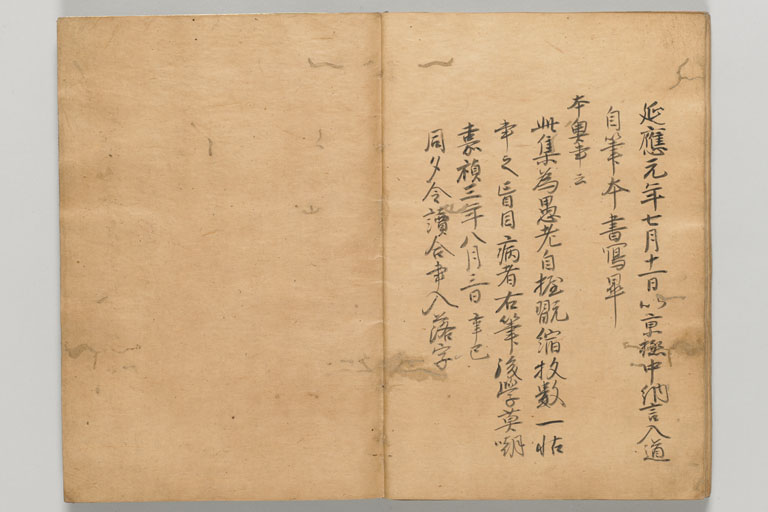 延應元年七月十一日以京極中納言入道
自筆本書寫畢
本奥書云
此集為愚老自握翫縮枚数一帖
書之盲目病者右筆後学莫嘲
嘉禎三年八月三日 辛巳
同夕令讀合書入落字